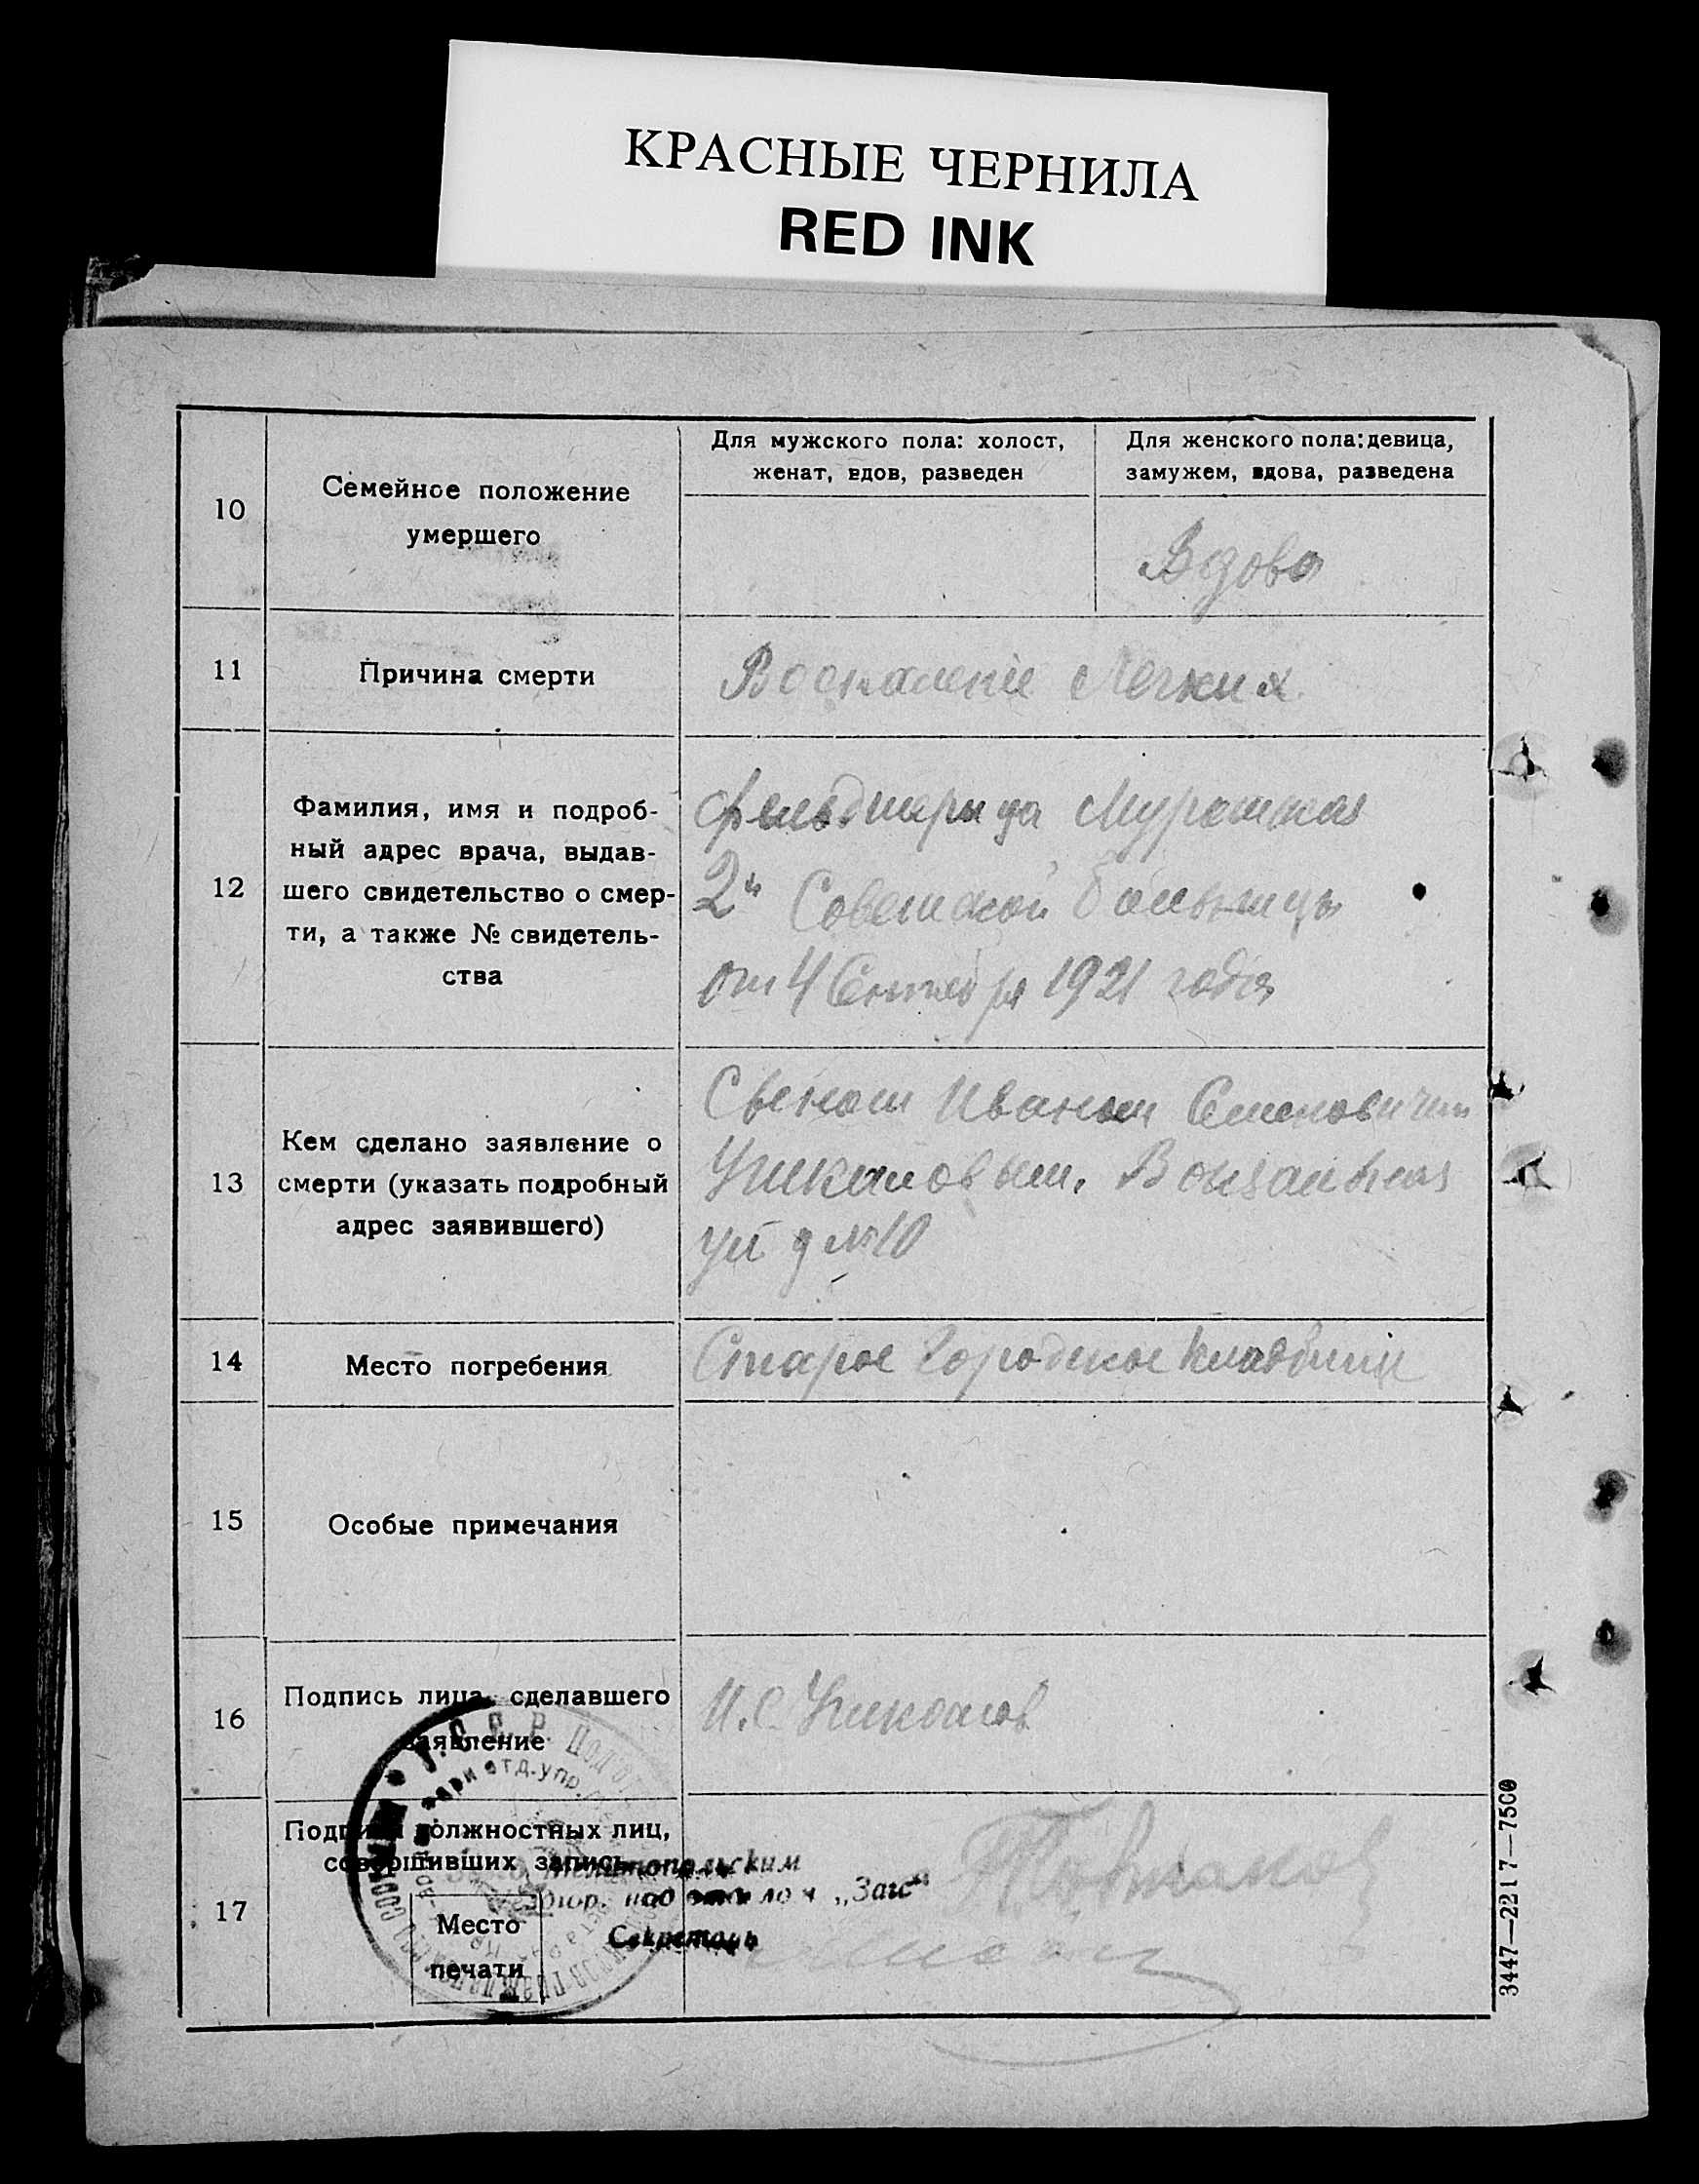 КРАСНЫЕ ЧЕРНИЛА
RED INK
10
Семейное положение
умершего
Для мужского пола: холост,
женат, вдов, разведен
Для женского пола: девица,
замужем, вдова, разведена
Вдова
11
Причина смерти
Воспаление Легких
12
Фамилия, имя и подроб-
ный адрес врача, выдав-
шего свидетельство о смер-
ти, а также № свидетель-
ства
Фельдшерица
2й Советской больницы
от 4 Сентября 1921 года
13
Кем сделано заявление о
смерти (указать подробный
адрес заявившего)
Иваном Семеновичем
Вокзальная
ул д №10
14
Место погребения
Старое Городское Кладбище
15
Особые примечания
16
Подпись лица, сделавшего
заявление
И.С.
17
Подписи должностных лиц,
совершивших запись
Место
печати
отд. упр.
„Загс“
Секретарь
3447—2217—7500